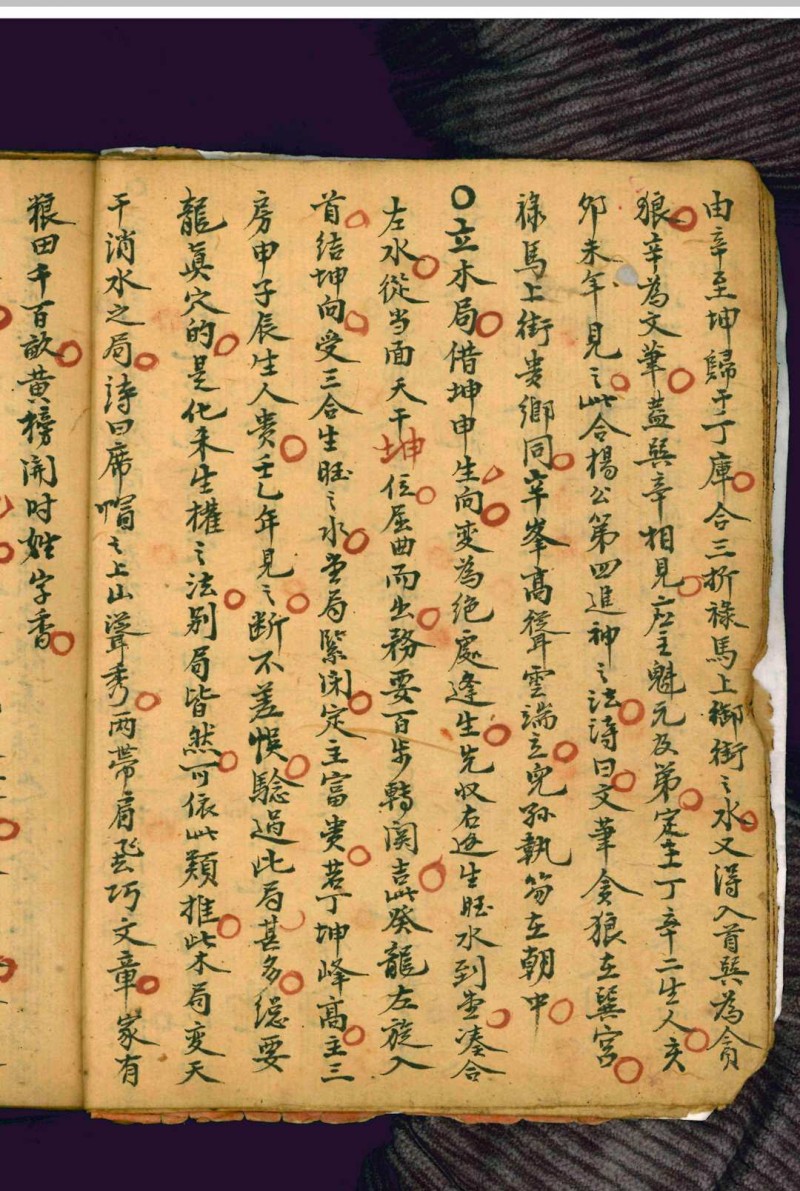 由辛至坤歸于丁庫合三折祿馬上御街之水又得入首巽為貪
狼辛為文筆蓋巽辛相見应主魁元及第定主丁辛二生人亥
卯未年見之此合楊公第四進神之法詩曰文筆貪狼在巽宮
祿馬上街贵鄉同辛峯高聳雲端立兒孫執笏在朝中
〇立木局借坤申生向変為絶處逢生先收右边生旺水到堂凑合
左水從当面天干坤位屈曲而出務要百步轉関吉此癸龍左旋入
首结坤向受三合生旺之水堂局緊闭定主富贵若丁坤峰高主三
房申子辰生人贵壬乙年見之断不差悮驗過此局甚多縂要
龍真穴的是化杀生權之法别局皆然可依此類推此木局变天
干消水之局詩曰席帽之上山聳秀两帶肩
巧文章家有
粮田千百畝黄榜開时姓字香